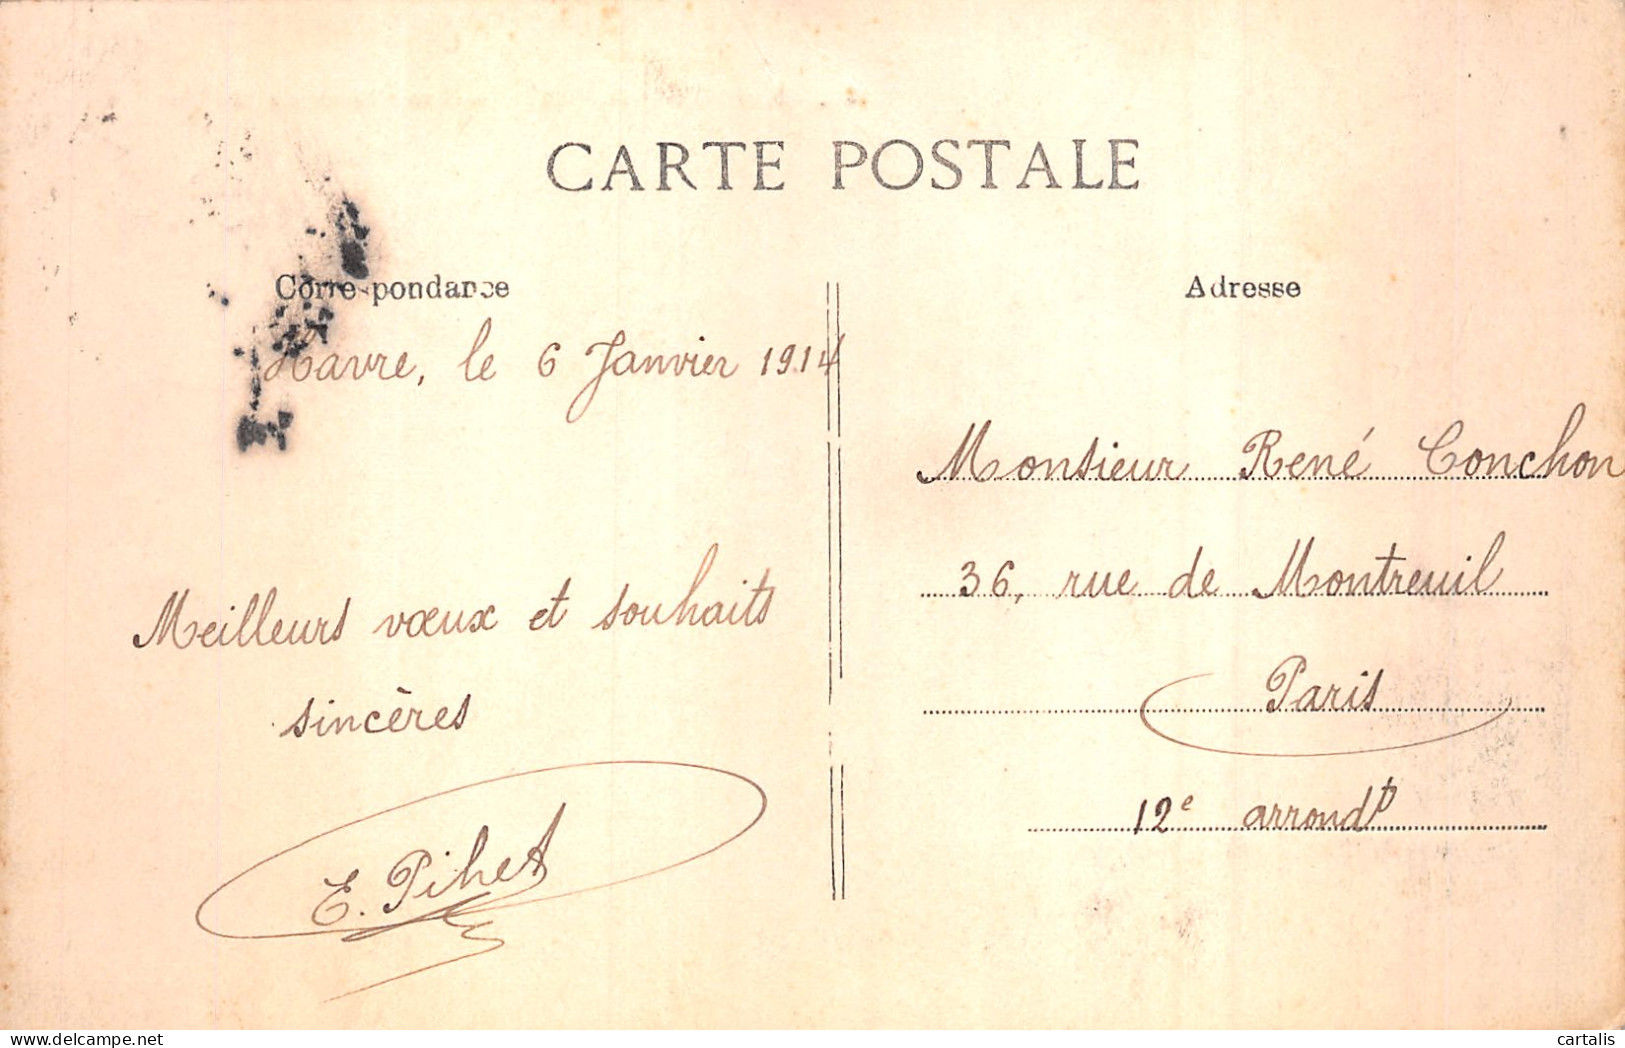 CARTE POSTALE
Correspondance
Adresse
Havre, le 6 Janvier 1914
Meilleurs vœux et souhaits
sincères
E. Pihet
Monsieur René Conchon
36, rue de Montreuil
Paris
12e arrondt
delcampe.net
cartalis